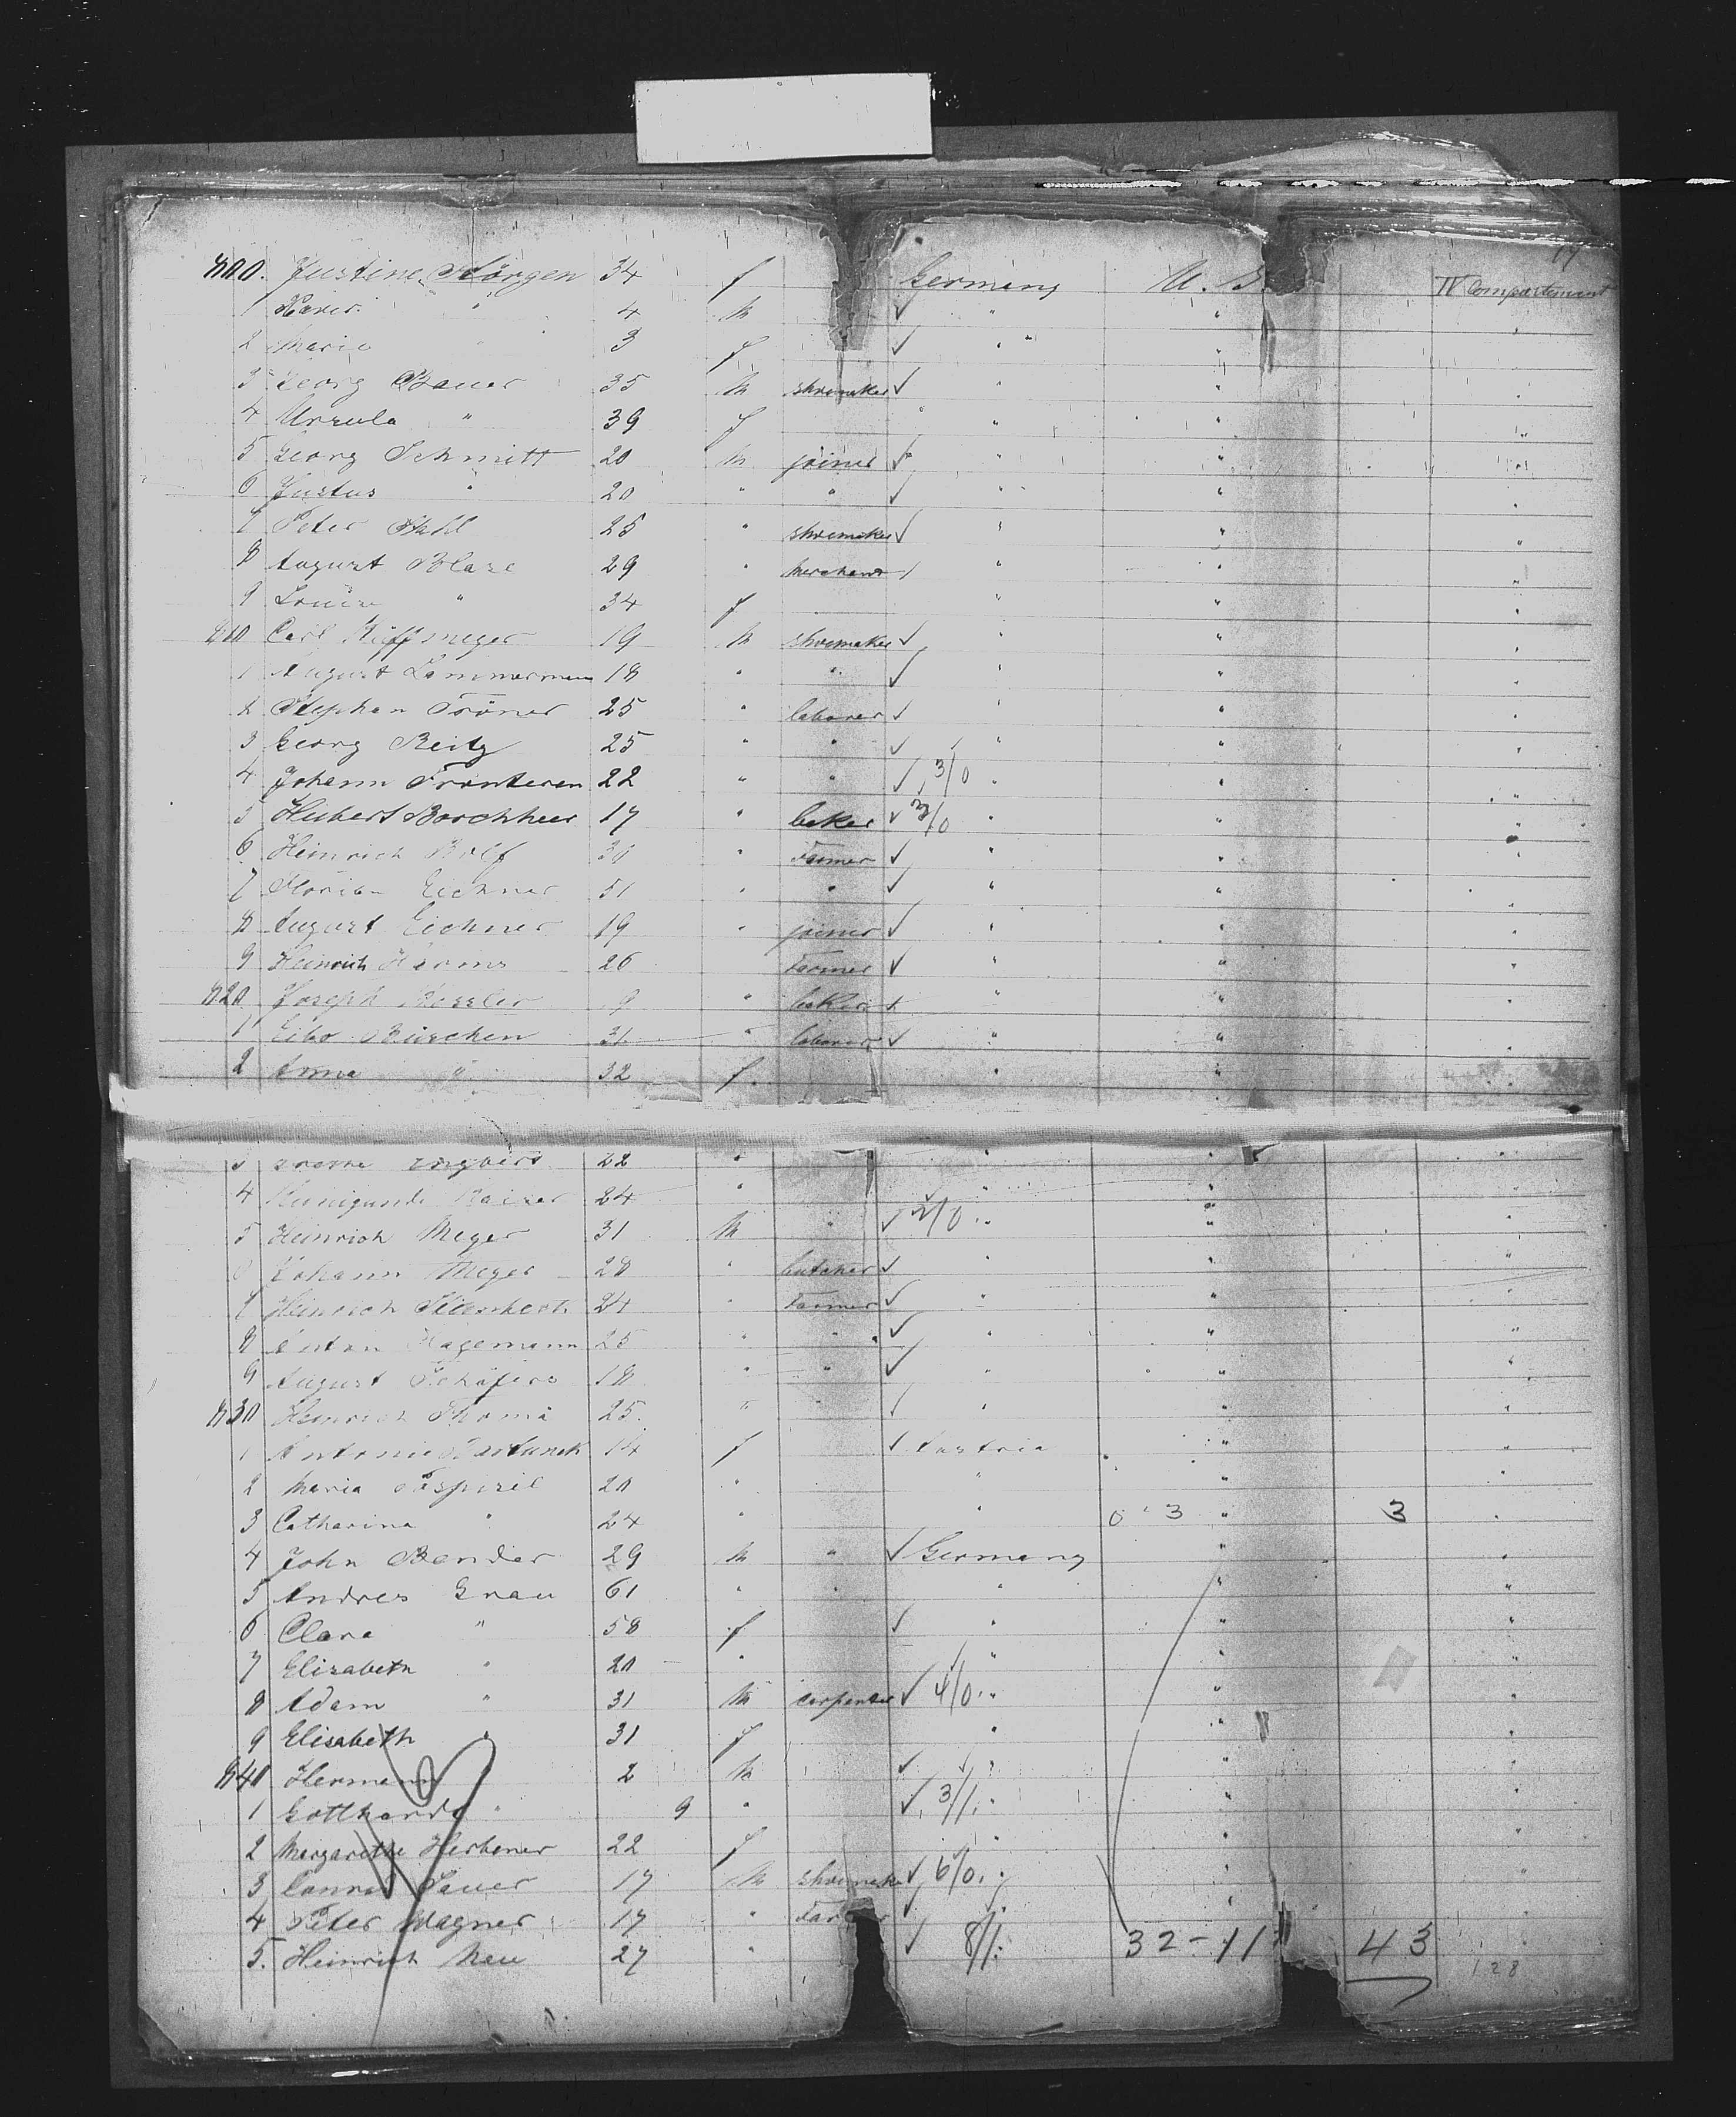 800. Justine Störgen 34 f Germany U. S. IV Compartement
1 Xaver " 4 m ✓ " " "
2 Marie " 3 f ✓ " " "
3 Georg Bauer 35 m shoemaker ✓ " " "
4 Ursula " 39 f " " "
5 Georg Schmitt 20 m joiner ✓ " " "
6 Justus " 20 " " ✓ " " "
7 Peter Stahl 25 " shoemaker ✓ " " "
8 August Blase 29 " merchant " " "
9 Louise " 34 f " " "
810 Carl 19 m shoemaker ✓ " " "
1 August Lammermann 18 " " ✓ " " "
2 Stephan Tröner 25 " laborer ✓ " " "
3 Georg Reitz 25 " " ✓ " " "
4 Johann 22 " " ✓ 3/0 " " "
5 Hubert Borchheer 17 " baker ✓ 3/0 " " "
6 Heinrich Rolf 30 " Farmer ✓ " " "
7 Florian Eichner 51 " " ✓ " " "
8 August Eichner 19 " joiner ✓ " " "
9 Heinrich Harms 26 Farmer ✓ " " "
820 Joseph Kessler 9 " baker " " "
1 Buschen 31 " laborer ✓ " " "
2 Anna " 32 f. " " "
3 Engbers 22 " " " "
4 Kunigunde Kaiser 24 " ✓ " " "
5 Heinrich Meyer 31 m " ✓ 2/0 " " "
6 Johann Meyer 28 " butcher ✓ " " "
7 Heinrich 24 " Farmer ✓ " " "
8 Anton Hagemann 25 " " ✓ " " "
9 August Schäfers 18 " " ✓ " " "
830 Heinrich Thoma 25. " ✓ " " "
1 Antonie 14 f ✓ Austria " "
2 Maria 20 " " " "
3 Catharina " 24 " " 0 3 " 3 "
4 John Bender 29 m " ✓ Germany " "
5 Andres Grau 61 " " " " "
6 Clara " 58 f ✓ " " "
7 Elizabeth " 20 " " " "
8 Adam " 31 m carpenter ✓ 4/0 " " "
9 Elisabeth " 31 f " " "
840 Hermann 2 m ✓ " " "
1 Gotthardt " 9 " ✓ 3/1 " " "
2 Margarethe Herbener 22 f " " "
3 Conrad Sauer 17 m shoemaker ✓ 6/0 " " "
4 Peter Wagner 17 " Farmer ✓ " "
5. Heinrich Nau 27 " ✓ 8/1 32-11 43
128